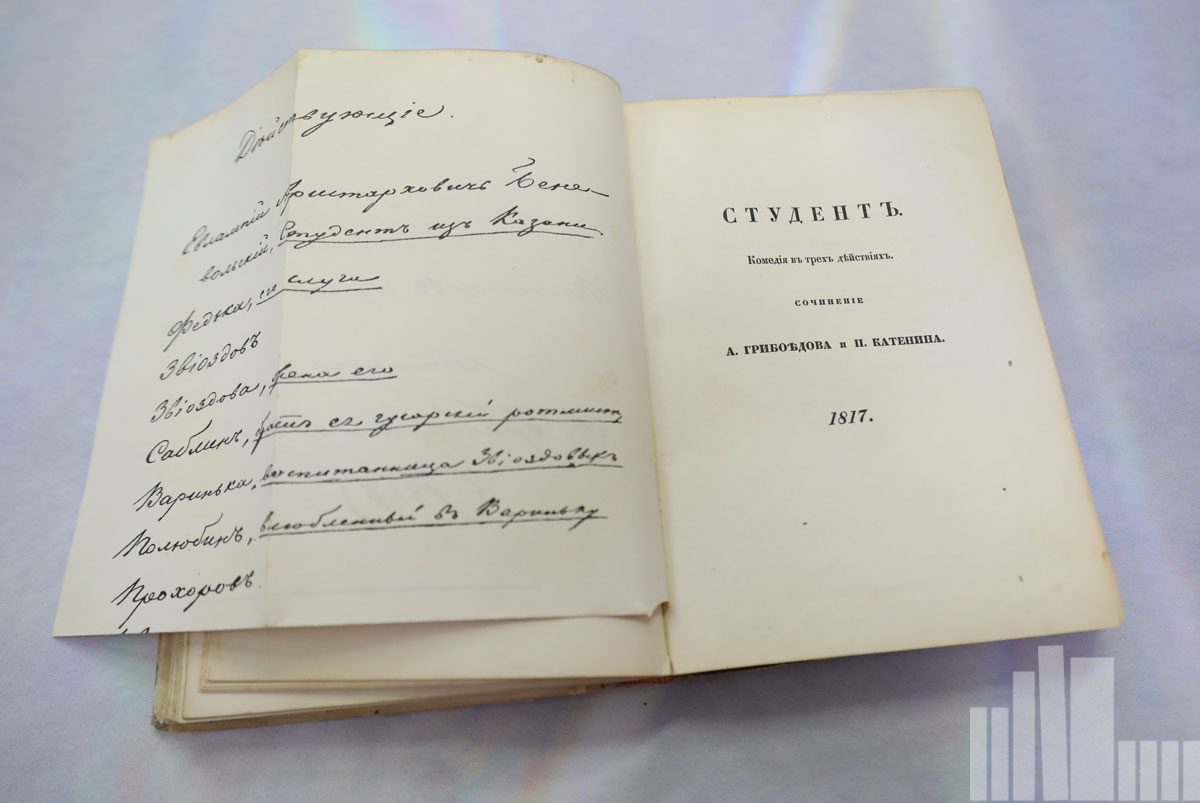 Дѣйствующіе.
Евлампій Аристарховичъ Бене-
вольскій, студентъ изъ Казани
Федька, его слуга
Звіоздовъ
Звіоздова, жена его
Саблинъ, братъ ея гусарскій ротмистръ
Варинька, воспитанница Звіоздовыхъ
Полюбинъ, влюбленный въ Вариньку
Прохоровъ
СТУДЕНТЪ.
Комедія въ трехъ дѣйствіяхъ.
СОЧИНЕНІЕ
А. ГРИБОѢДОВА и П. КАТЕНИНА.
1817.